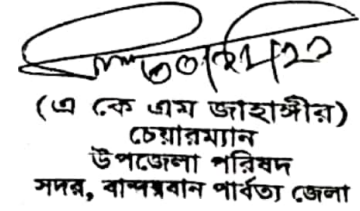 (এ কে এম জাহাঙ্গীর)
চেয়ারম্যান
উপজেলা পরিষদ
সদর, বান্দরবান পার্বত্য জেলা